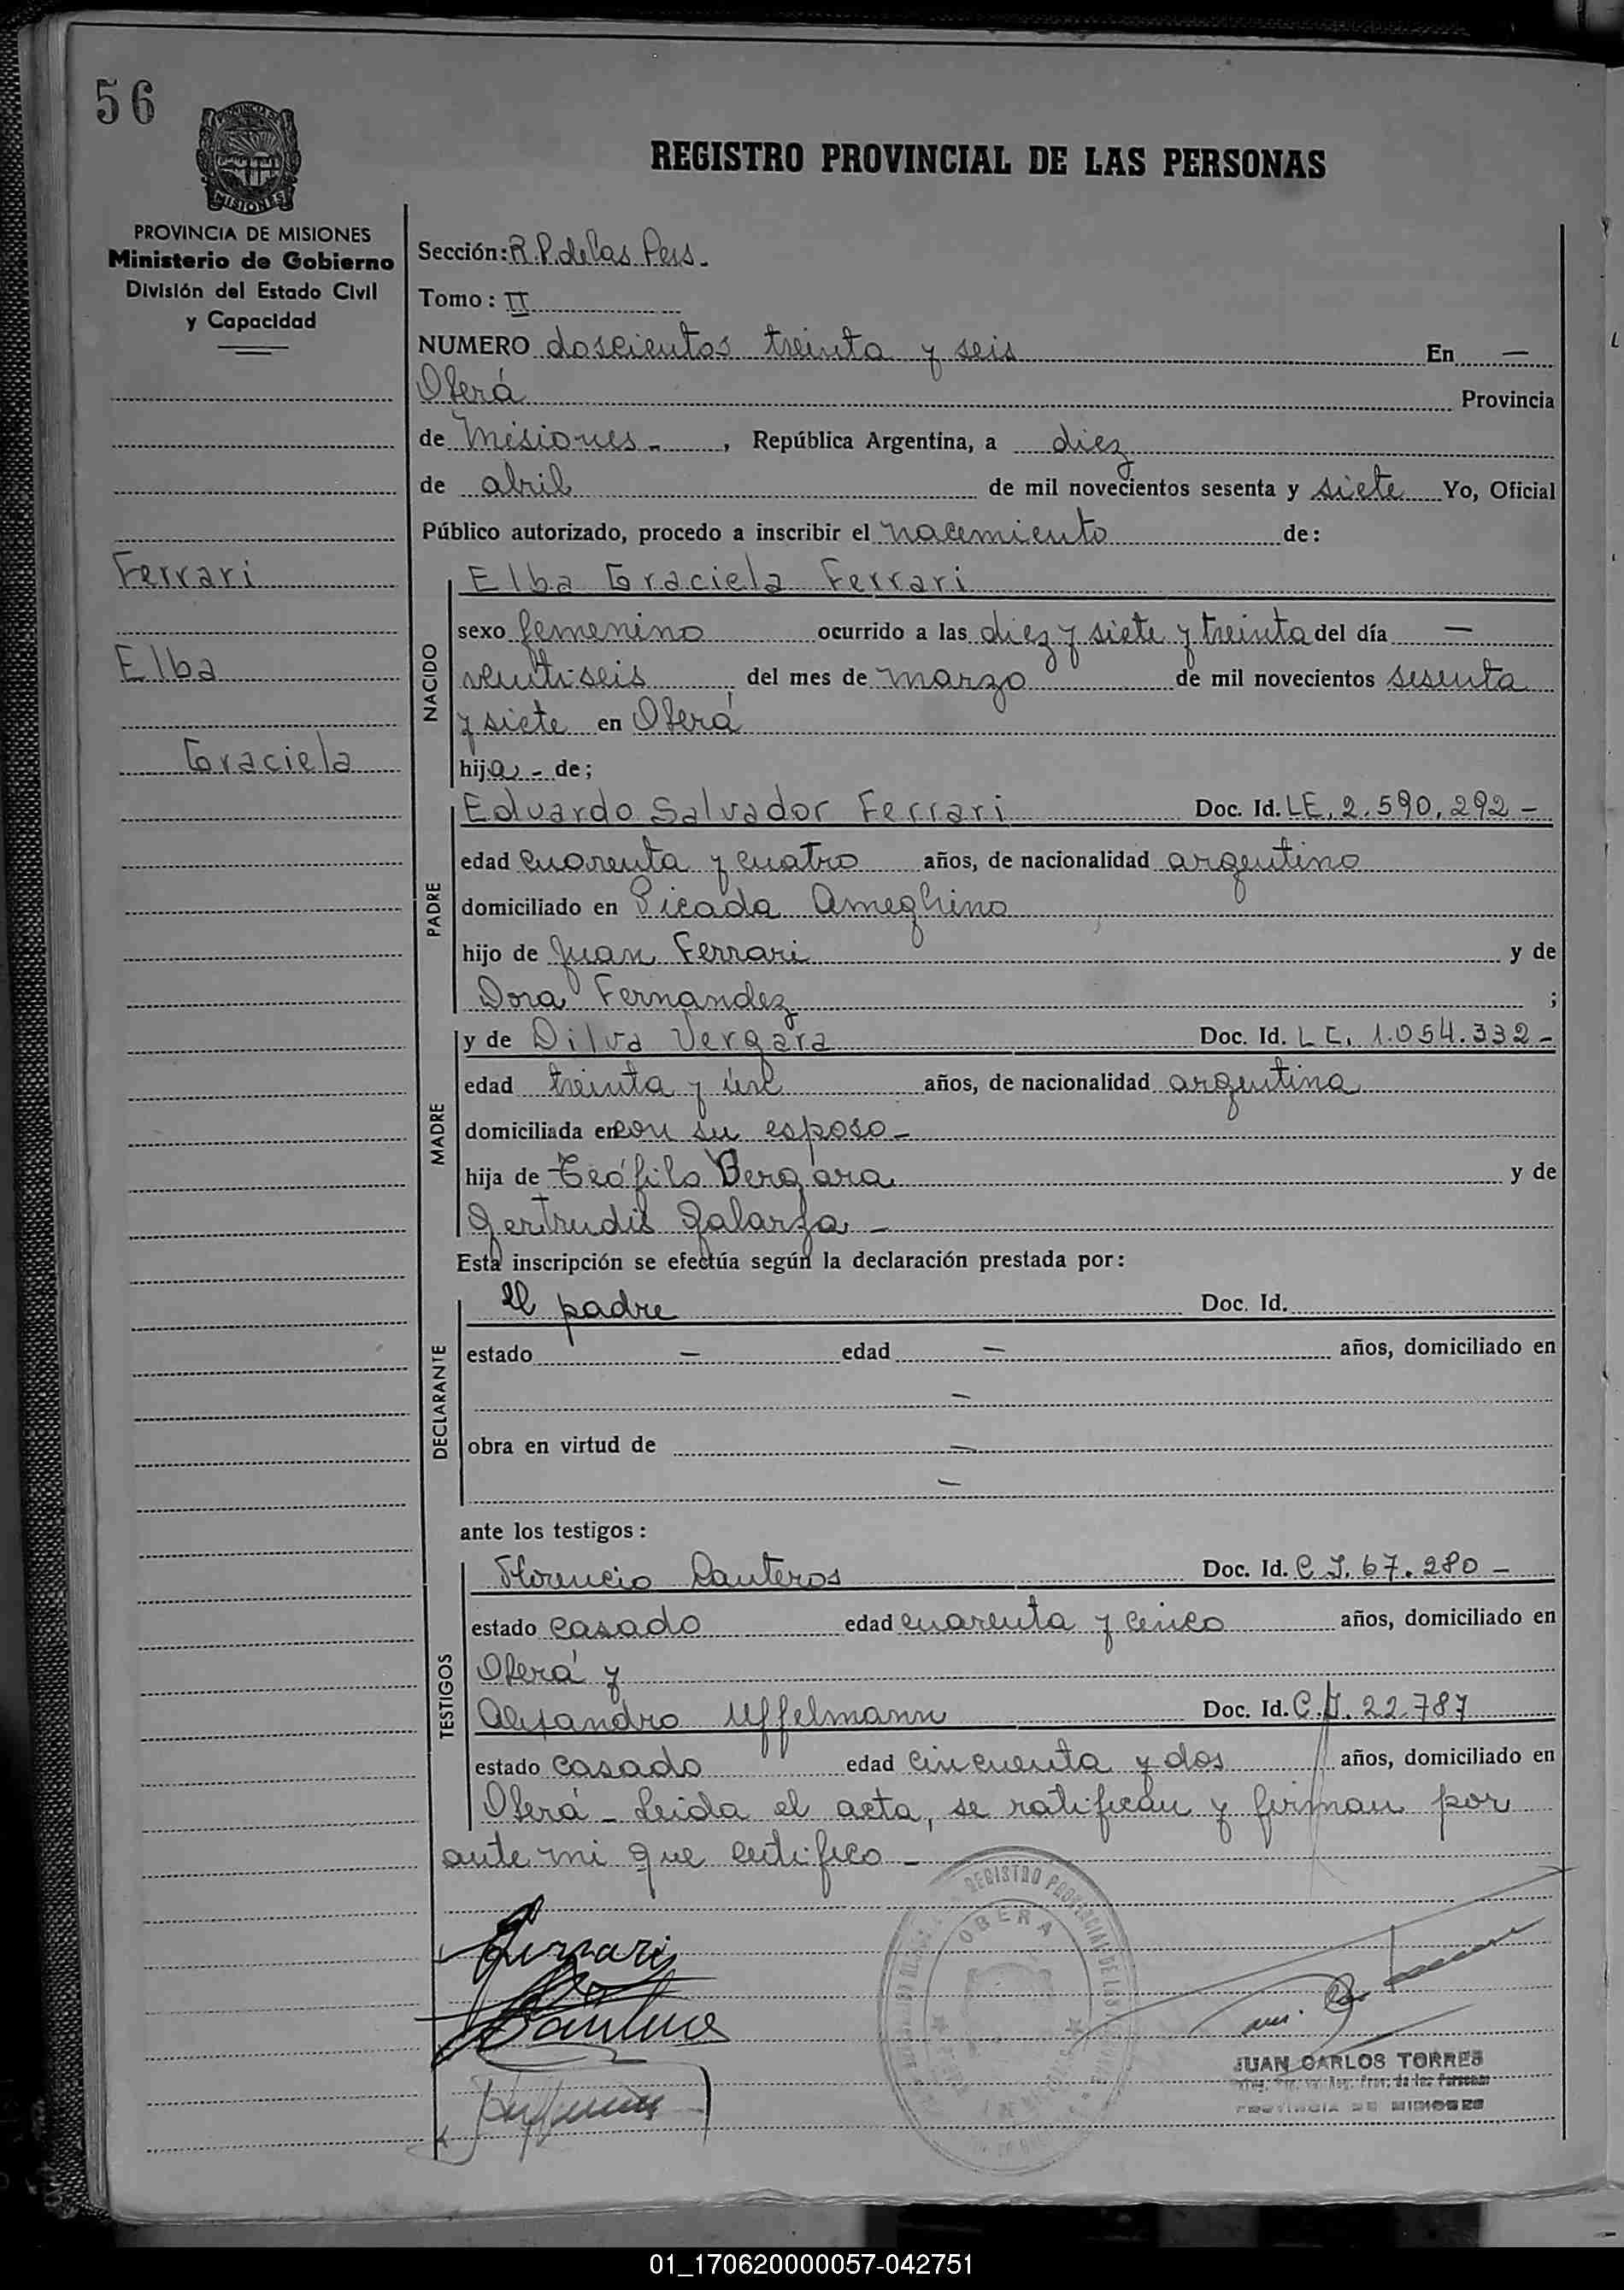 56
PROVINCIA DE
MISIONES
REGISTRO PROVINCIAL DE LAS PERSONAS
PROVINCIA DE MISIONES
Ministerio de Gobierno
División del Estado Civil
y Capacidad
Ferrari
Elba
Graciela
Sección: R.P. de las Pers.
Tomo: II
NUMERO doscientos treinta y seis En —
Oberá Provincia
de Misiones - , República Argentina, a diez
de abril de mil novecientos sesenta y siete Yo, Oficial
Público autorizado, procedo a inscribir el nacimiento de:
NACIDO
Elba Graciela Ferrari
sexo femenino ocurrido a las diez y siete y treinta del día —
ventiseis del mes de marzo de mil novecientos sesenta
y siete en Oberá
hija - de;
PADRE
Eduardo Salvador Ferrari Doc. Id. LE. 2.590.292 -
edad cuarenta y cuatro años, de nacionalidad argentino
domiciliado en Picada Ameghino
hijo de Juan Ferrari y de
Dora Fernandez ;
MADRE
y de Dilva Vergara Doc. Id. L C. 1.054.332 -
edad treinta y un años, de nacionalidad argentina
domiciliada en con su esposo -
hija de Teófilo Vergara y de
Gertrudis Galarza -
Esta inscripción se efectúa según la declaración prestada por:
DECLARANTE
El padre Doc. Id.
estado — edad — años, domiciliado en
—
obra en virtud de —
—
ante los testigos:
TESTIGOS
Florencio Lauteros Doc. Id. C I. 67.280 -
estado casado edad cuarenta y cinco años, domiciliado en
Oberá y
Alejandro Uffelmann Doc. Id. C.I. 22.787
estado casado edad cincuenta y dos años, domiciliado en
Oberá - Leida el acta, se ratifican y firman por
ante mi que certifico -
REGISTRO PROVINCIAL DE LAS
OBERA
Ferrari
JUAN CARLOS TORRES
Prov. de las Personas
PROVINCIA DE MISIONES
01_170620000057-042751